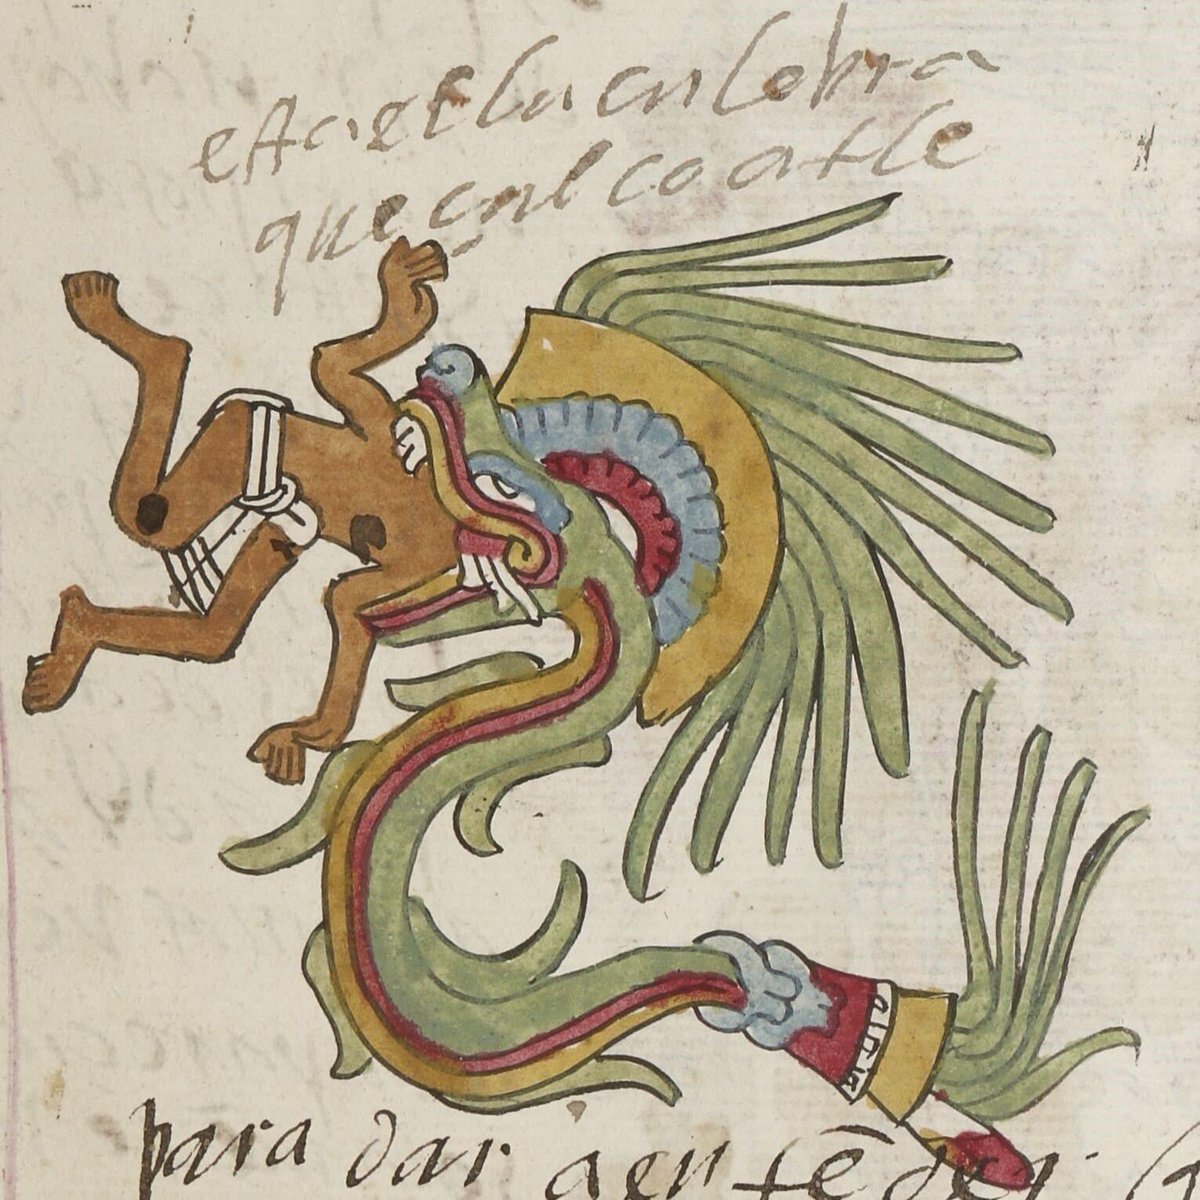 esta es la culebra
queçalcoatle
para dar a entēder la